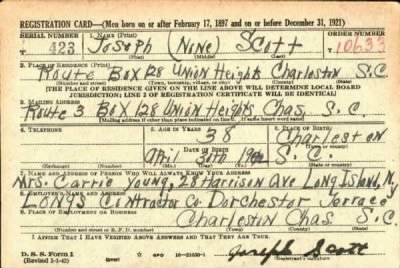 REGISTRATION CARD—(Men born on or after February 17, 1897 and on or before December 31, 1921)
SERIAL NUMBER 1. NAME (Print) ORDER NUMBER
T 423 Joseph (None) Scott 10633
(First) (Middle) (Last)
2. PLACE OF RESIDENCE (Print)
Route Box 128 Union Heights Charleston S.C.
(Number and street) (Town, township, village, or city) (County) (State)
[THE PLACE OF RESIDENCE GIVEN ON THE LINE ABOVE WILL DETERMINE LOCAL BOARD
JURISDICTION; LINE 2 OF REGISTRATION CERTIFICATE WILL BE IDENTICAL]
3. MAILING ADDRESS
Route 3 Box 128 Union Heights Chas. S.C.
[Mailing address if other than place indicated on line 2. If same insert word same]
4. TELEPHONE 5. AGE IN YEARS 6. PLACE OF BIRTH
38 Charleston
DATE OF BIRTH (Town or county)
April 30th S.C.
(Exchange) (Number) (Mo.) (Day) (Yr.) (State or country)
7. NAME AND ADDRESS OF PERSON WHO WILL ALWAYS KNOW YOUR ADDRESS
Mrs. Carrie Young, 28 Harrison Ave Long Island, N.Y
8. EMPLOYER'S NAME AND ADDRESS
Longs Contractor Co. Dorchester Terrace
9. PLACE OF EMPLOYMENT OR BUSINESS
Charleston Chas. S.C.
(Number and street or R. F. D. number) (Town) (County) (State)
I AFFIRM THAT I HAVE VERIFIED ABOVE ANSWERS AND THAT THEY ARE TRUE.
D. S. S. Form 1
(Revised 1-1-42) GPO 16—21630-1 Joseph Scott
(Registrant's signature)